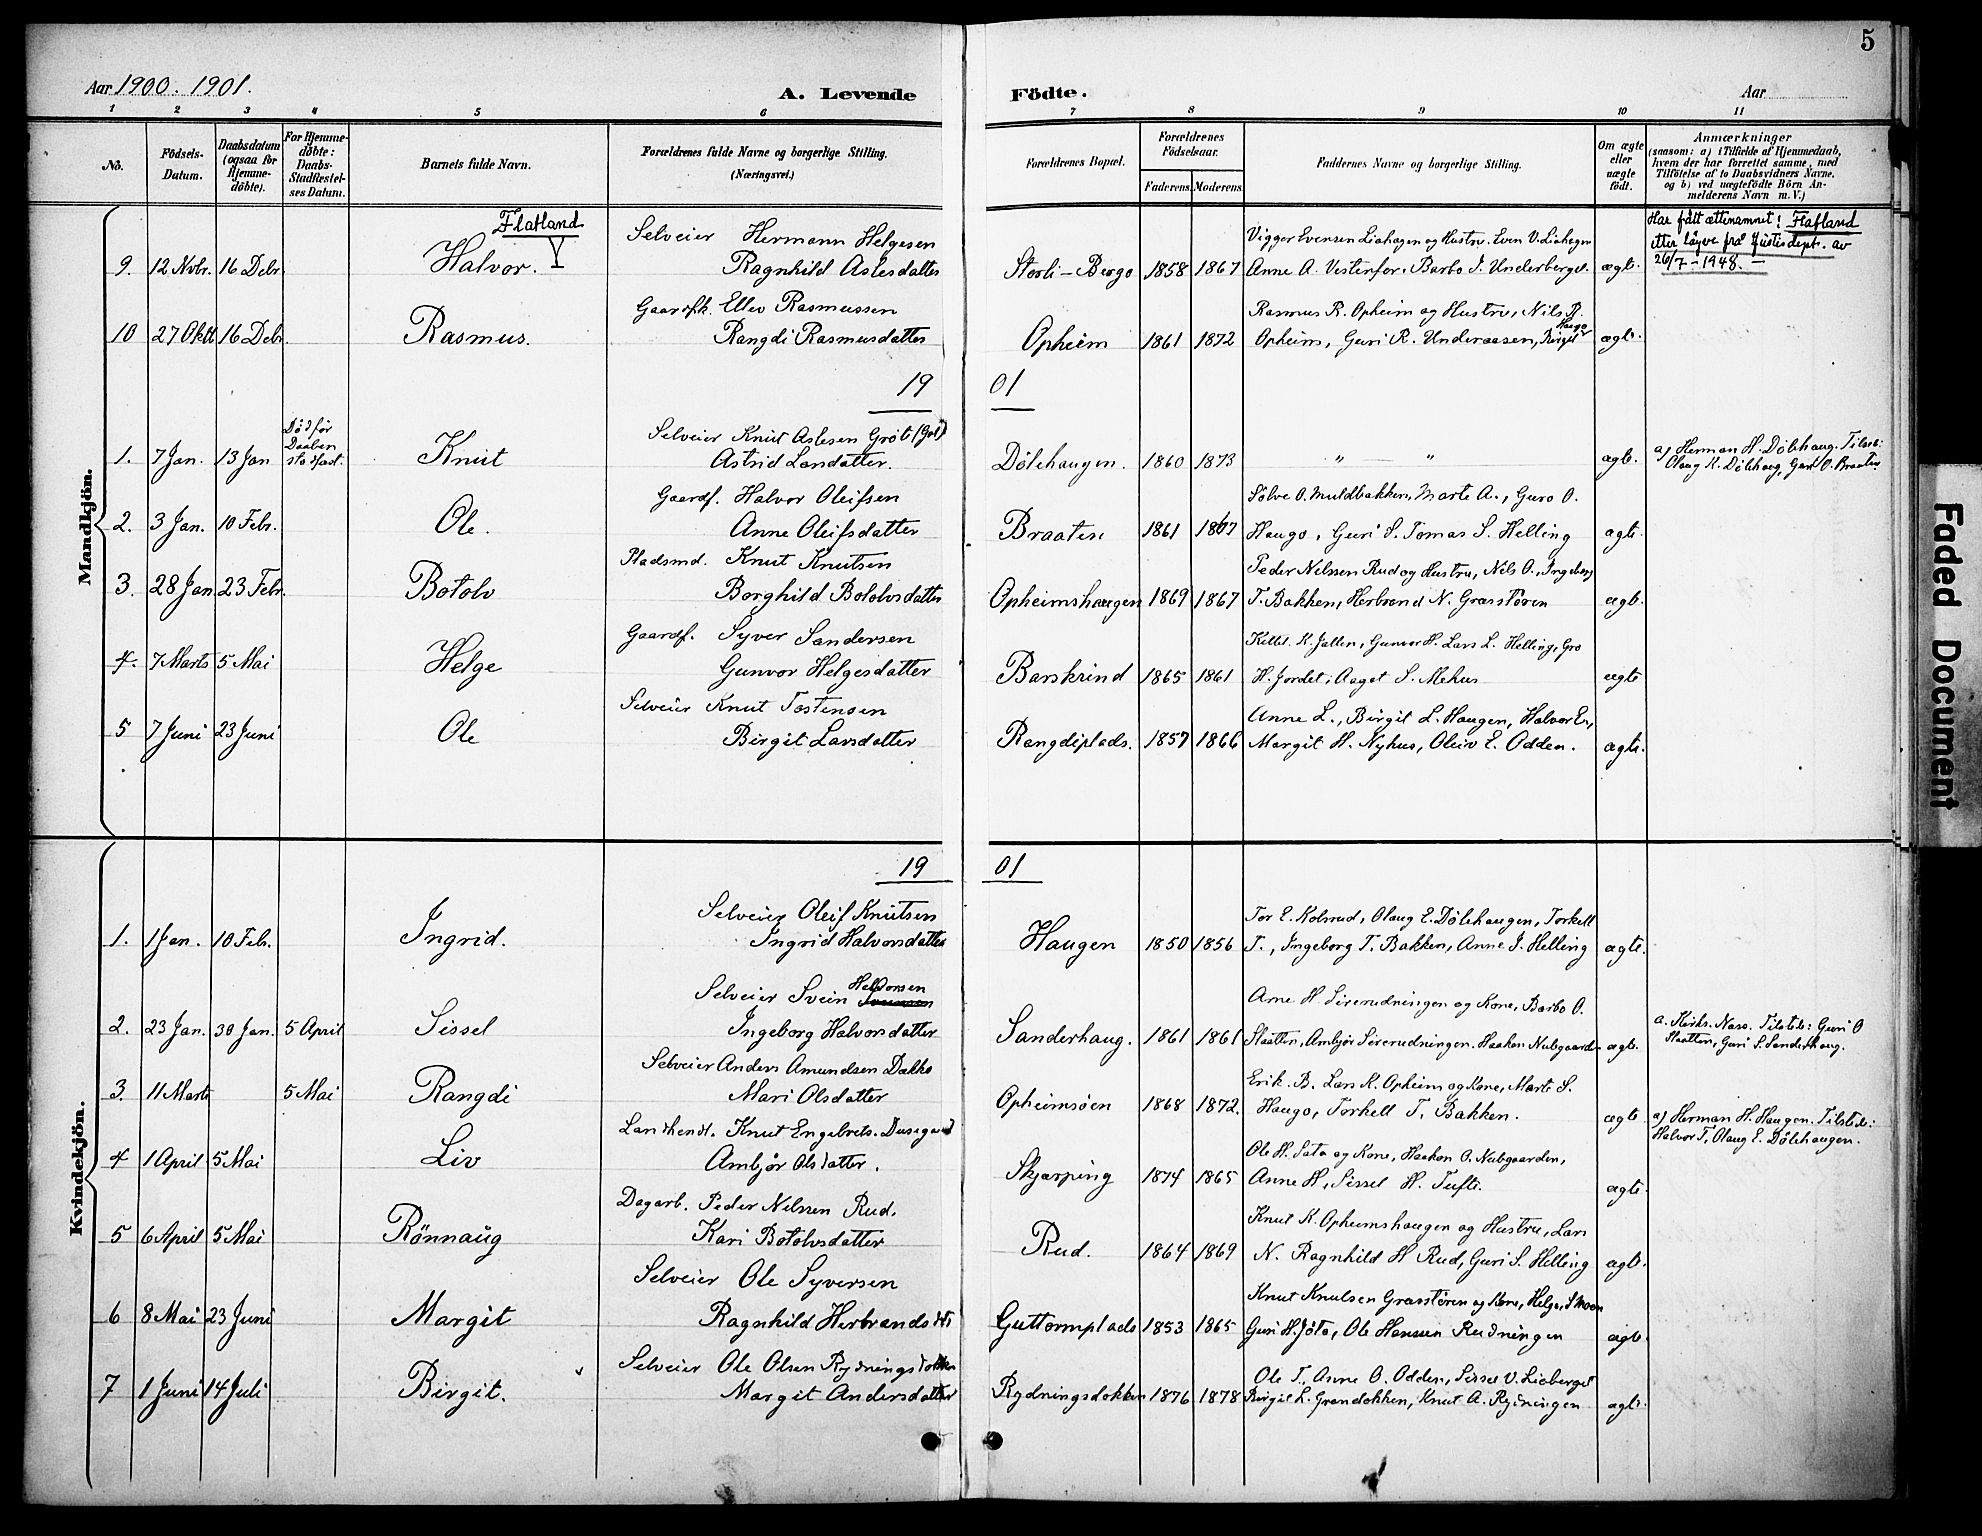 5
Aar 1900. 1901.
A. Levende Födte.
Aar
1 2 3 4 5 6 7 8 9 10 11
No.
Födsels-Datum.
Daabsdatum (ogsaa for Hjemme-döbte).
For Hjemme-döbte: Daabs-Stadfæstel-ses Datum.
Barnets fulde Navn.
Forældrenes fulde Navne og borgerlige Stilling. (Næringsvei.)
Forældrenes Bopæl.
Forældrenes Födselsaar.
Faderens. Moderens.
Faddernes Navne og borgerlige Stilling.
Om ægte eller uægte födt.
Anmærkninger
(saasom: a) i Tilfælde af Hjemmedaab,
hvem der har forrettet samme, med
Tilföielse af to Daabsvidners Navne,
og b) ved uægtefödte Börn An-
melderens Navn m. V.)
Mandkjön.
Flatland
Selveier Hermann Helgesen
Vigger Evensen Liahagen og Hustru. Even V. Liahagen
Har fått ættenamnet: Flatland
etter løyve frå Justisdept. av
26/7 - 1948. -
9. 12 Novbr. 16 Debr. Halvor. Ragnhild Aslesdatter Storli-Bergo 1858 1867 Anne A. Vestenfor, Barbo J. Underberget. ægte.
Gaardfk. Ellev Rasmussen
Rasmus R. Opheim og Hustru, Nils R.
10 27 Oktb 16 Debr. Rasmus. Rangdi Rasmusdatter Opheim 1861 1872 Opheim, Guri R. Underaasen, Birgit Haugo ægte.
19 01
Död før Daaben stadfæst.
Selveier Knut Aslesen Gröt (Gol)
1. 7 Jan. 13 Jan Knut Astrid Larsdatter. Dölehaugen. 1860 1873 " — " ægte. a) Herman H. Dölehaug. Tilsted:
Olaug K. Dölehaug, Guri O. Braaten
Gaardf. Halvor Oleifsen
Sölve O. Muldbakken, Marte A., Guro O.
2. 3 Jan. 10 Febr. Ole. Anne Oleifsdatter Braaten 1861 1867 Haugo, Guri S. Tomas S. Helling ægte.
Pladsmd. Knut Knutsen
Peder Nilssen Rud og Hustru, Nils O., Ingeborg
3. 28 Jan 23 Febr. Botolv Borghild Botolvsdatter Opheimshaugen 1869 1867 T. Bakken, Herbrand N. Græstören ægte.
Gaardf. Syver Sandersen
K. Jallen, Gunvor H. Lars L. Helling, Gro
4. 7 Marts 5 Mai Helge Gunvor Helgesdatter Barskrind 1865 1861 H. Jordet, Aagot S. Mehus ægte
Selveier Knut Tostensen
Anne L., Birgit L. Haugen, Halvor E.,
5 7 Juni 23 Juni Ole Birgit Larsdatter Rangdiplads. 1857 1866 Margit H. Nyhus, Oleiv E. Odden. ægte.
Kvindekjön.
19 01
Selveier Oleif Knutsen
Tor E. Kolsrud, Olaug E. Dölehaugen, Torkell
1. 1 Jan. 10 Feb. Ingrid. Ingrid Halvorsdatter Haugen 1850 1856 T., Ingeborg T. Bakken, Anne J. Helling ægte.
Selveier Svein Halvorsen
Arne H. Sirerudningen og Kone, Barbo O.
2. 23 Jan. 30 Jan. 5 April Sissel Ingeborg Halvorsdatter Sanderhaug. 1861 1861 Slaatten, Ambjör Sirerudningen. Haakon Nubgaarden ægte. a. Kirks. Nass. Tilsted: Guri O
Slaatten, Guri S. Sanderhaug.
Selveier Anders Amundsen Dokko
Erik B. Lars K. Opheim og Kone, Marte S.
3. 11 Marts 5 Mai Rangdi Mari Olsdatter Opheimsöen 1868 1872. Haugo, Torkell T. Bakken. ægte a) Herman H. Haugen. Tilstede:
Halvor T, Olaug E. Dölehaugen.
Landhendl. Knut Engebrets. Dusegaard
Ole H. Sata og Kone, Haakon O. Nubgaarden,
4 1 April 5 Mai Liv Ambjör Olsdatter. Skjærping 1874 1865 Anne H, Sissel H. Tufte. ægte.
Dagarb. Peder Nilssen Rud.
Knut K. Opheimshaugen og Hustru, Lars
5 6 April 5 Mai Rönnaug Kari Botolvsdatter Rud. 1864 1869 N. Ragnhild H Rud, Guri S. Helling ægte.
Selveier Ole Syversen
Knut Knutsen Græstören og Kone, Helge S Moen
6 8 Mai 23 Juni Margit Ragnhild Herbrandsdtr Guttormplads 1853 1865 Guri H. Jöto, Ole Hansen Rudningen ægte
Selveier Ole Olsen Rydningsdokken
Ole T., Anne O. Odden, Sissel V. Lieberget
7 1 Juni 14 Juli Birgit. Margit Andersdatter Rydningsdokken 1876 1878 Birgit L. Grondokken, Knut A. Rydningen ægte.
Faded Document